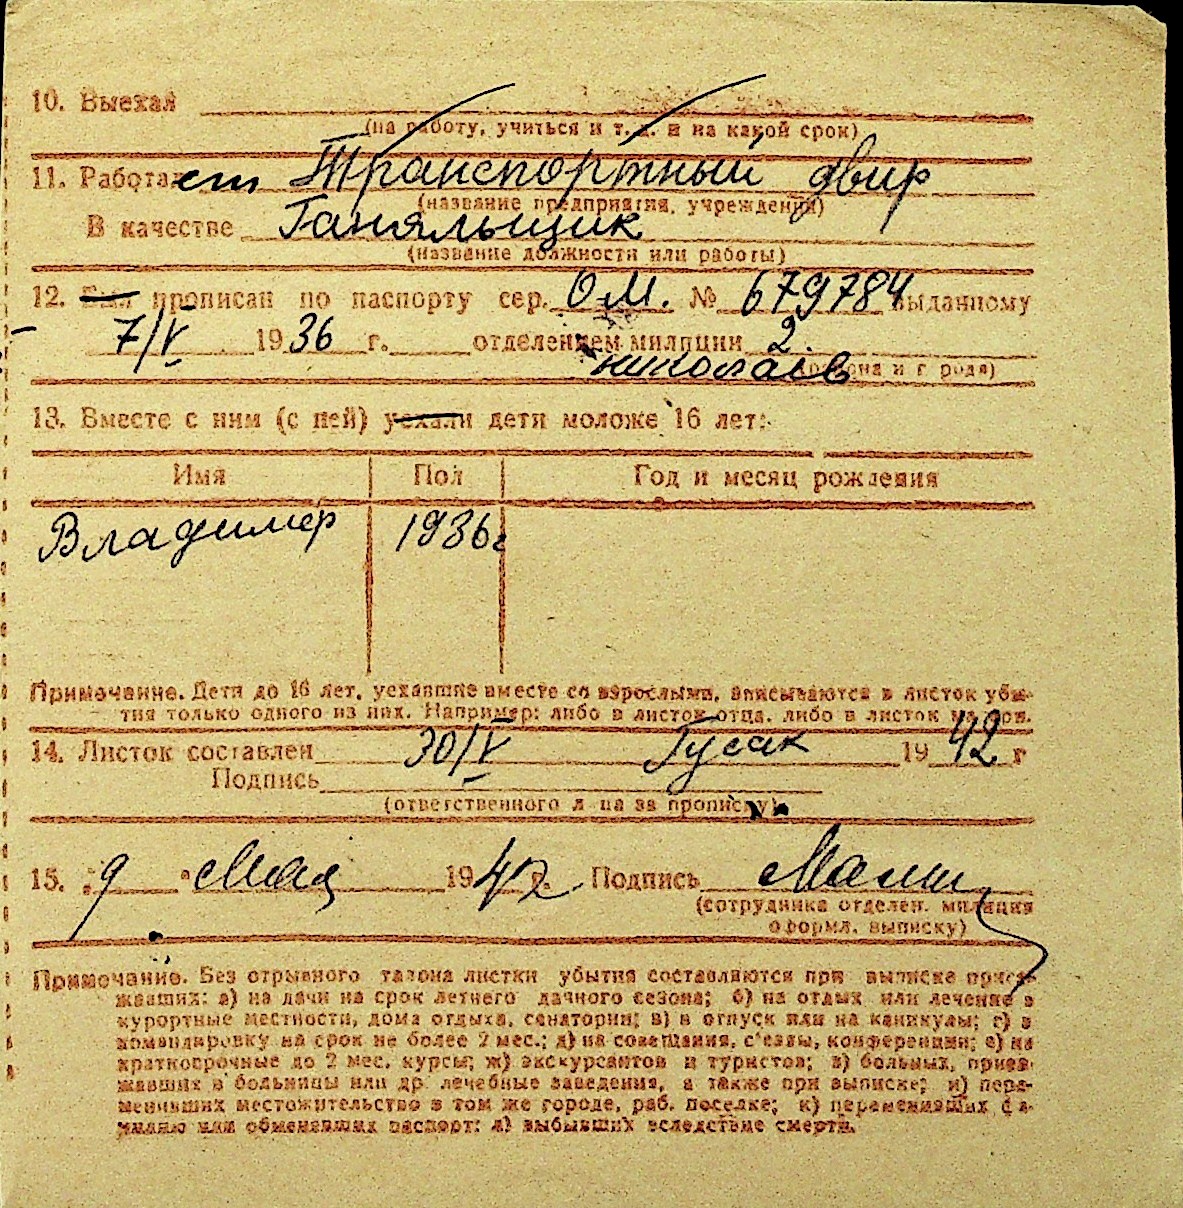 10. Выехал
(на работу, учиться и т. д. и на какой срок)
11. Работает Транспортный двир
(название предприятия, учреждения)
В качестве Ганяльщик
(название должности или работы)
12. Был прописан по паспорту сер. О.М. № 679784 выданному
7/V 1936 г. отделением милиции 2.
николаев
13. Вместе с ним (с ней) уехали дети моложе 16 лет:
Имя Пол Год и месяц рождения
Владимер 1936г
Примечание. Дети до 16 лет, уехавшие вместе со взрослыми, вписываются в листок убы-
тия только одного из них. Например: либо в листок отца, либо в листок матери.
14. Листок составлен 30/V Гусак 1942 г
Подпись
(ответственного лица за прописку)
15. "9" Мая 1942 г. Подпись
(сотрудника отделен. милиции
оформл. выписку)
Примечание. Без отрывного талона листки убытия составляются при выписке приез-
жавших: а) на дачи на срок летнего дачного сезона; б) на отдых или лечение в
курортные местности, дома отдыха, санатории; в) в отпуск или на каникулы; г) в
командировку на срок не более 2 мес.; д) на совещания, с'езды, конференции; е) на
краткосрочные до 2 мес. курсы; ж) экскурсантов и туристов; з) больных, приез-
жавших в больницы или др. лечебные заведения, а также при выписке; и) пере-
менивших местожительство в том же городе, раб. поселке; к) переменивших фа-
милию или обменявших паспорт; л) выбывших вследствие смерти.